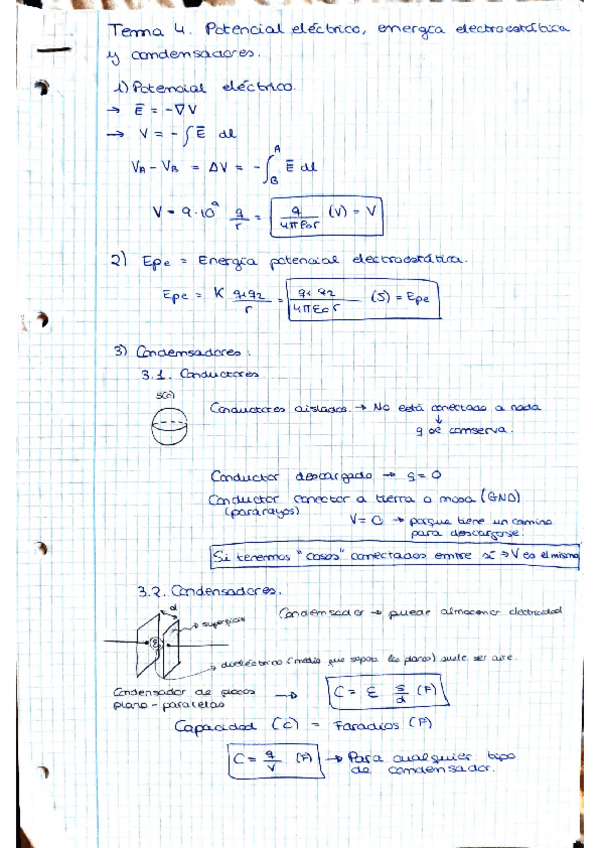 Tema 4. Potencial eléctrico, energía electrostática
y condensadores.
1) Potencial eléctrico.
→ E̅ = -∇V
→ V = -∫ E̅ dl
V_A - V_B = ΔV = -∫_B^A E̅ dl
V = 9·10⁹ q/r = q/4πε₀r (V) = V
2) Epe = Energía potencial electrostática.
Epe = K q₁q₂/r = q₁ q₂/4πε₀r (J) = Epe
3) Condensadores.
3.1. Conductores
Conductores aislados → No está conectado a nada
↓
q se conserva.
Conductor descargado → q = 0
Conductor conector a tierra o masa (GND)
(pararayos)
V = 0 → porque tiene un camino
para descargarse.
Si tenemos "cosas" conectadas entre sí ⇒ V es el mismo
3.2. Condensadores.
d
Condensador → puede almacenar electricidad
→ superficie
ε
→ dieléctrico (medio que separa las placas) suele ser aire.
Condensador de placas
plano-paralelas
→ C = ε s/d (F)
Capacidad (C) = Faradios (F)
C = q/V (F) → Para cualquier tipo
de condensador.